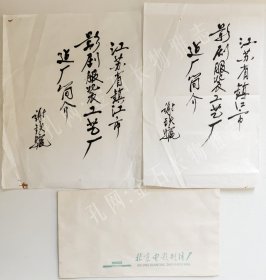 江苏省镇江市
影剧服装工艺厂
近厂简介
谢铁骊
江苏省镇江市
影剧服装工艺厂
近厂简介
谢铁骊
北京电影制片厂